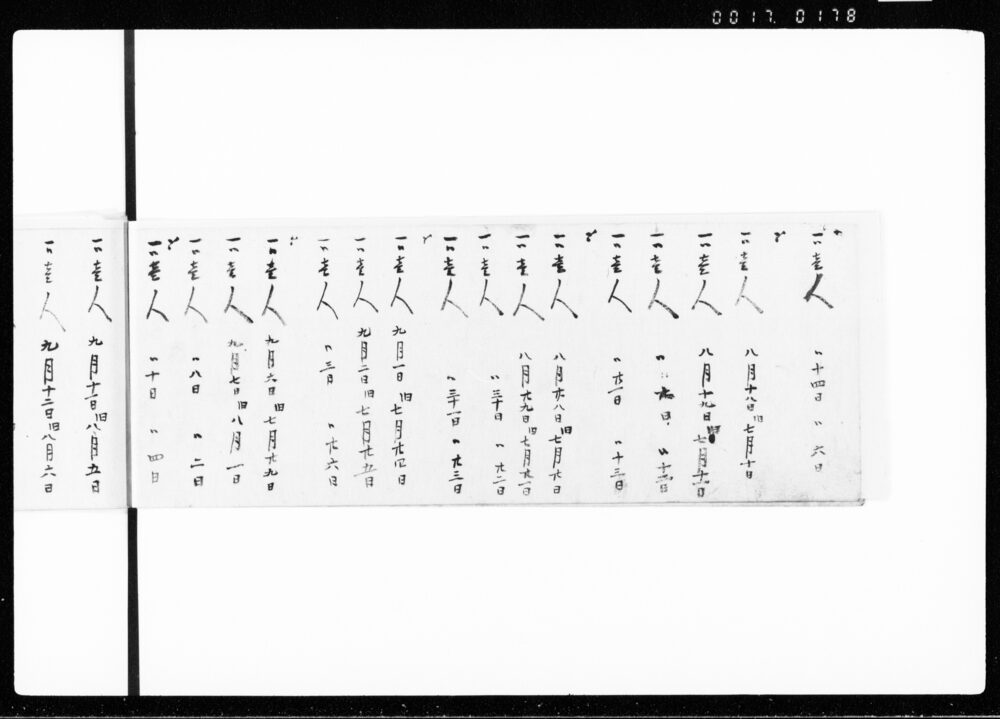 0017.0178
一〃壱人 〃十四日 〃六日
一〃壱人 八月十八日旧七月十日
一〃壱人 八月十九日旧七月十一日
一〃壱人 〃廿日 〃十二日
一〃壱人 〃廿一日 〃十三日
一〃壱人 八月廿八日旧七月廿日
一〃壱人 八月廿九日旧七月廿一日
一〃壱人 〃三十日 〃廿二日
一〃壱人 〃三十一日 〃廿三日
一〃壱人 九月一日旧七月廿四日
一〃壱人 九月二日旧七月廿五日
一〃壱人 〃三日 〃廿六日
一〃壱人 九月六日旧七月廿九日
一〃壱人 九月七日旧八月一日
一〃壱人 〃八日 〃二日
一〃壱人 〃十日 〃四日
一〃壱人 九月十一日旧八月五日
一〃壱人 九月十二日旧八月六日